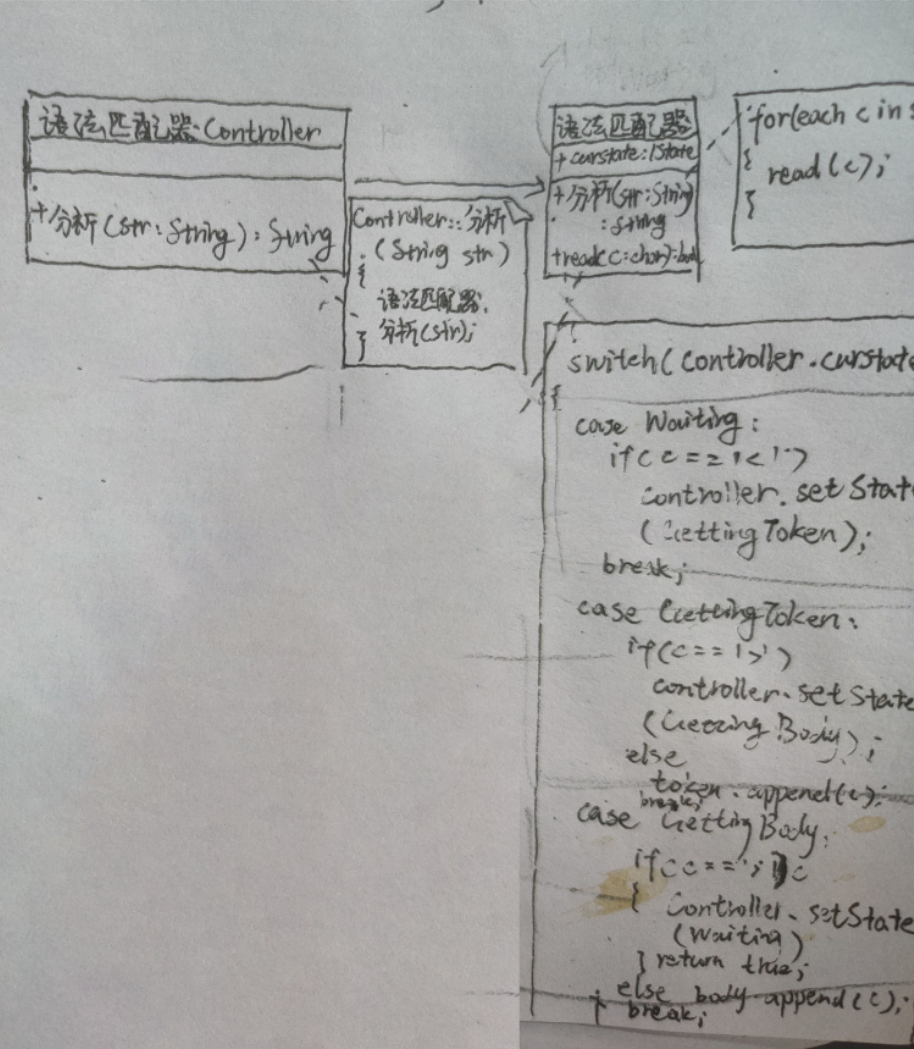 语法匹配器:Controller
+分析(str:String):String
Controller::分析
(String str)
{
语法匹配器.
分析(str);
}
语法匹配器
+curstate:IState
+分析(str:String)
:String
+read(c:char):bool
for(each c in s
{
read(c);
}
switch(controller.curstate
{
case Waiting:
if(c=='<')
controller.setState
(GettingToken);
break;
case GettingToken:
if(c=='>')
controller.setState
(GettingBody);
else
token.append(c);
break;
case GettingBody:
if(c==';')
{ Controller.setState
(Waiting)
} return true;
else body.append(c);
} break;